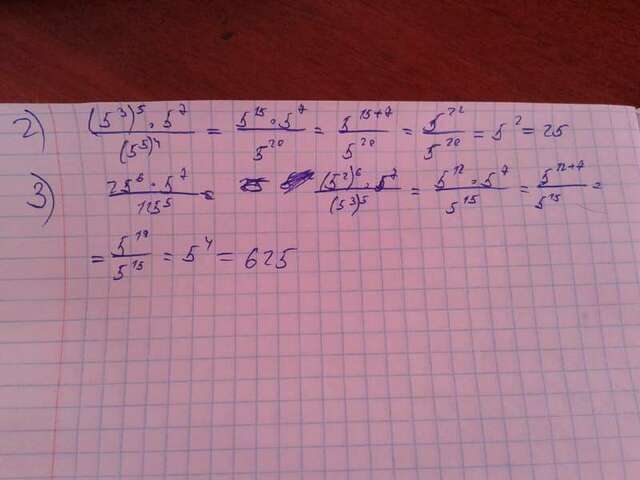 2) (5³)⁵ · 5⁷ / (5⁵)⁴ = 5¹⁵ · 5⁷ / 5²⁰ = 5¹⁵⁺⁷ / 5²⁰ = 5²² / 5²⁰ = 5² = 25
3) 25⁶ · 5⁷ / 125⁵ = (5²)⁶ · 5⁷ / (5³)⁵ = 5¹² · 5⁷ / 5¹⁵ = 5¹²⁺⁷ / 5¹⁵ =
= 5¹⁹ / 5¹⁵ = 5⁴ = 625